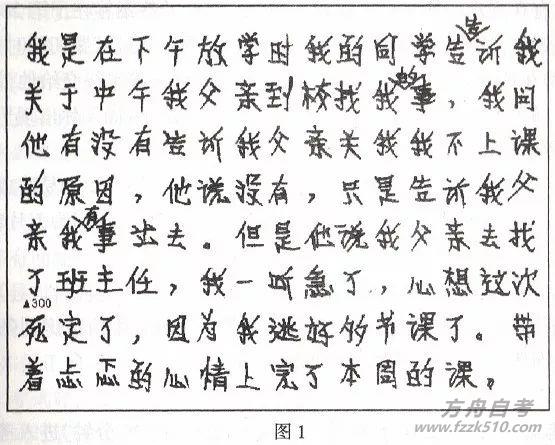 我是在下午放学时我的同学告诉我
关于中午我父亲到校找我的事，我问
他有没有告诉我父亲关我我不上课
的原因，他说没有，只是告诉我父
亲我有事出去。但是他说我父亲去找
了班主任，我一听急了，心想这次
▲300
死定了，因为我逃好多节课了。带
着忐忑的心情上完了本周的课。
方舟自考
www.fzzk510.com
图1